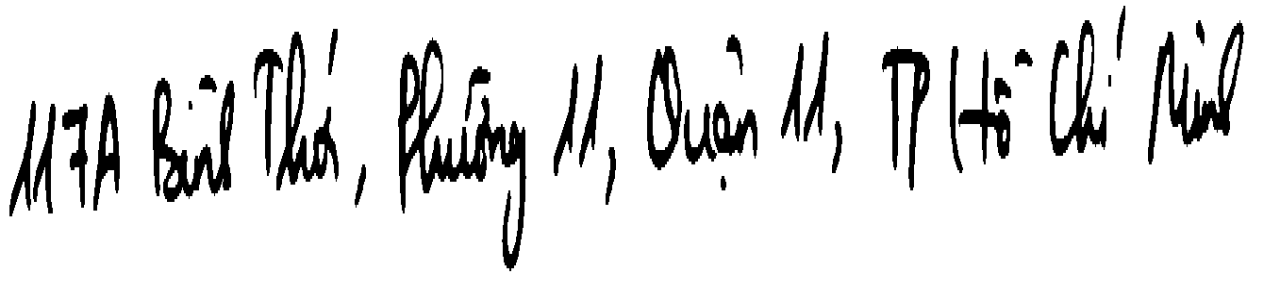 117A Bình Thới, Phường 11, Quận 11, TP Hồ Chí Minh